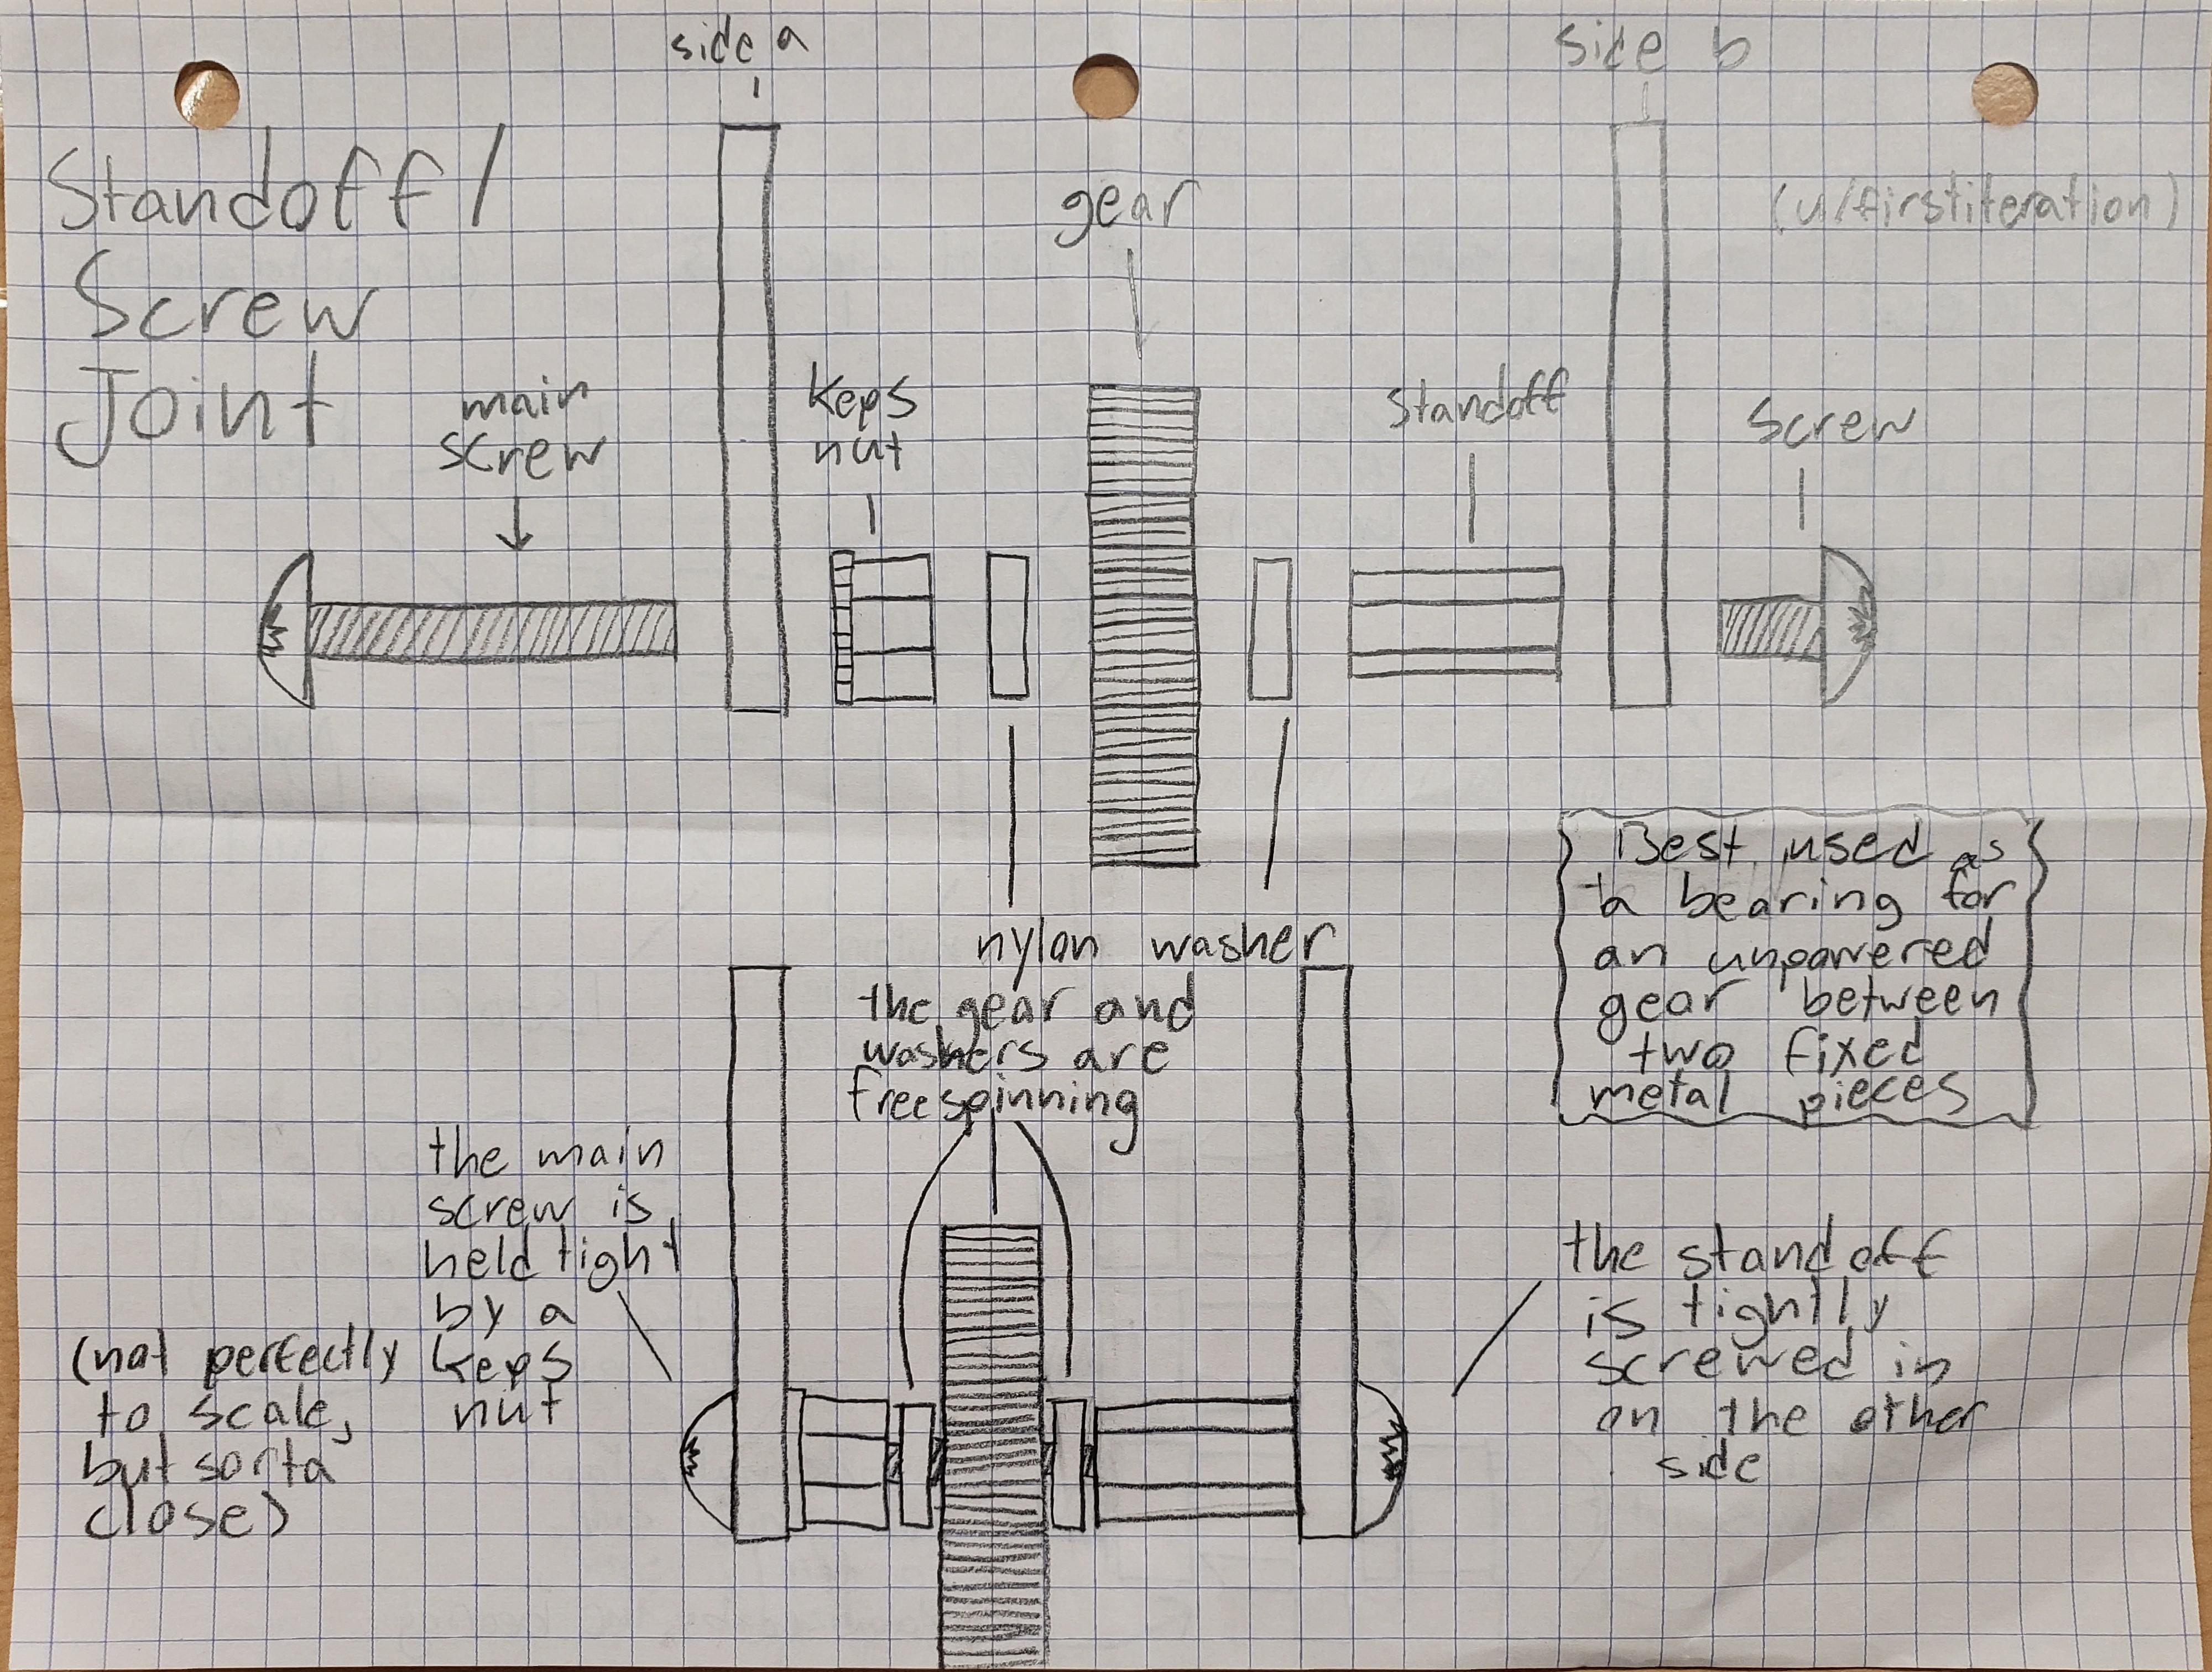 side a
side b
Standoff/
Screw
Joint
(u/firstiteration)
gear
main
screw
Keps
nut
standoff
screw
nylon washer
Best used as
a bearing for
an unpowered
gear between
two fixed
metal pieces
the gear and
washers are
free spinning
the main
screw is
held tight
by a
keps
nut
(not perfectly
to scale,
but sorta
close)
the standoff
is tightly
screwed in
on the other
side